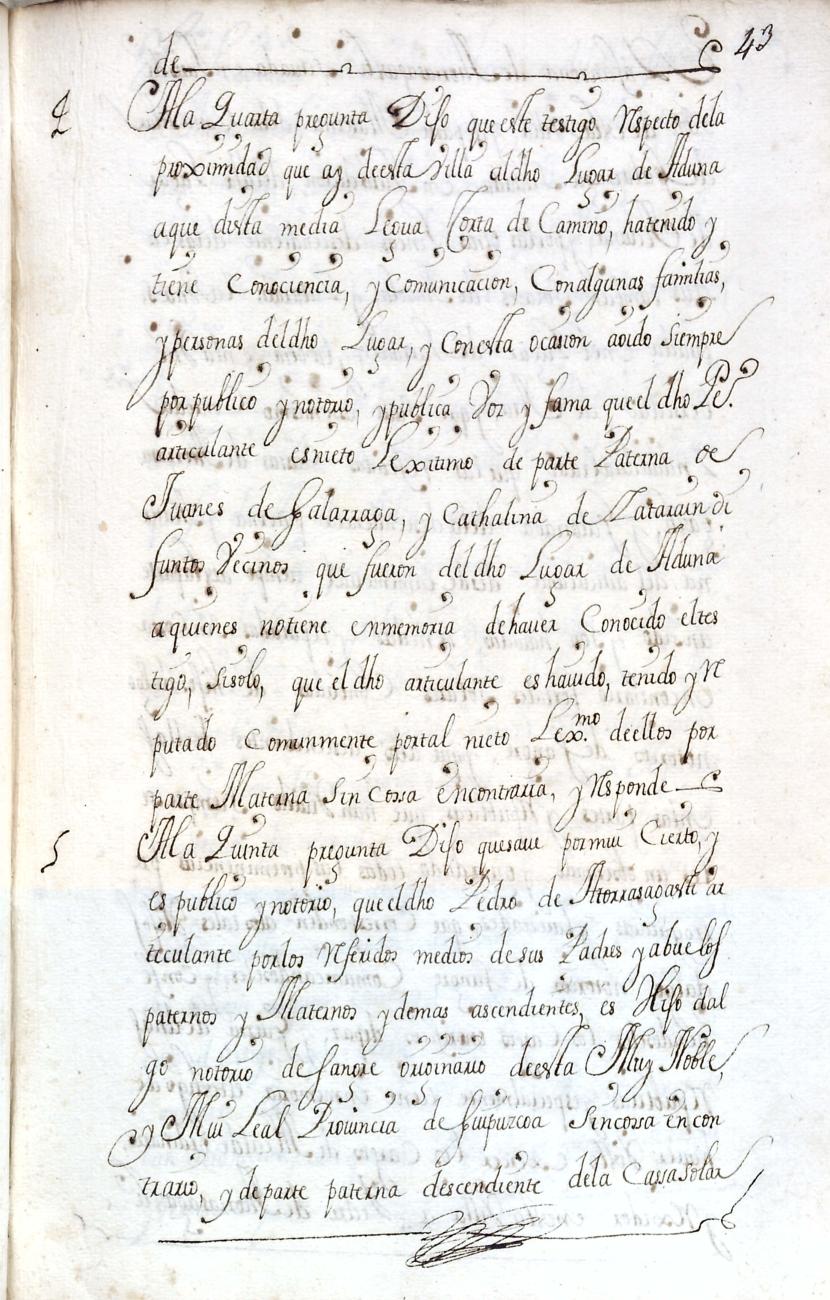 43
de
4 A la Quarta pregunta Dijo que este testigo Respecto dela
proximidad que ay deesta villa al dho Lugar de Aduna
aque dista media Legua Corta de Camino, hatenido y
tiene Conociencia, y Comunicacion, Conalgunas familias,
y personas deldho Lugar, y Conesta ocasion aoido siempre
por publico y notorio, y publica Voz y fama que el dho Pe.
articulante es nieto Lexitimo de parte Paterna de
Juanes de Galarraga, y Cathalina de Latarain di
funtos Vecinos que fueron deldho Lugar de Aduna
a quienes notiene enmemoria dehaver Conocido eltes
tigo, sisolo, que el dho articulante es hauido, tenido y Re
putado Comunmente portal nieto Lex.mo deellos por
parte Materna sin Cossa encontrario, y Responde
5 A la Quinta pregunta Dijo quesaue pormui Cierto, y
es publico y notorio, que eldho Pedro de Atorrasagasti ar
teculante porlos Referidos medios desus Padres y abuelos
paternos y Maternos y demas ascendientes, es Hijo dal
go notorio de sangre originario deesta Muy Noble,
y Mui Leal Prouincia de Guipuzcoa sincossa encon
trario, y departe paterna descendiente dela Cassa solar